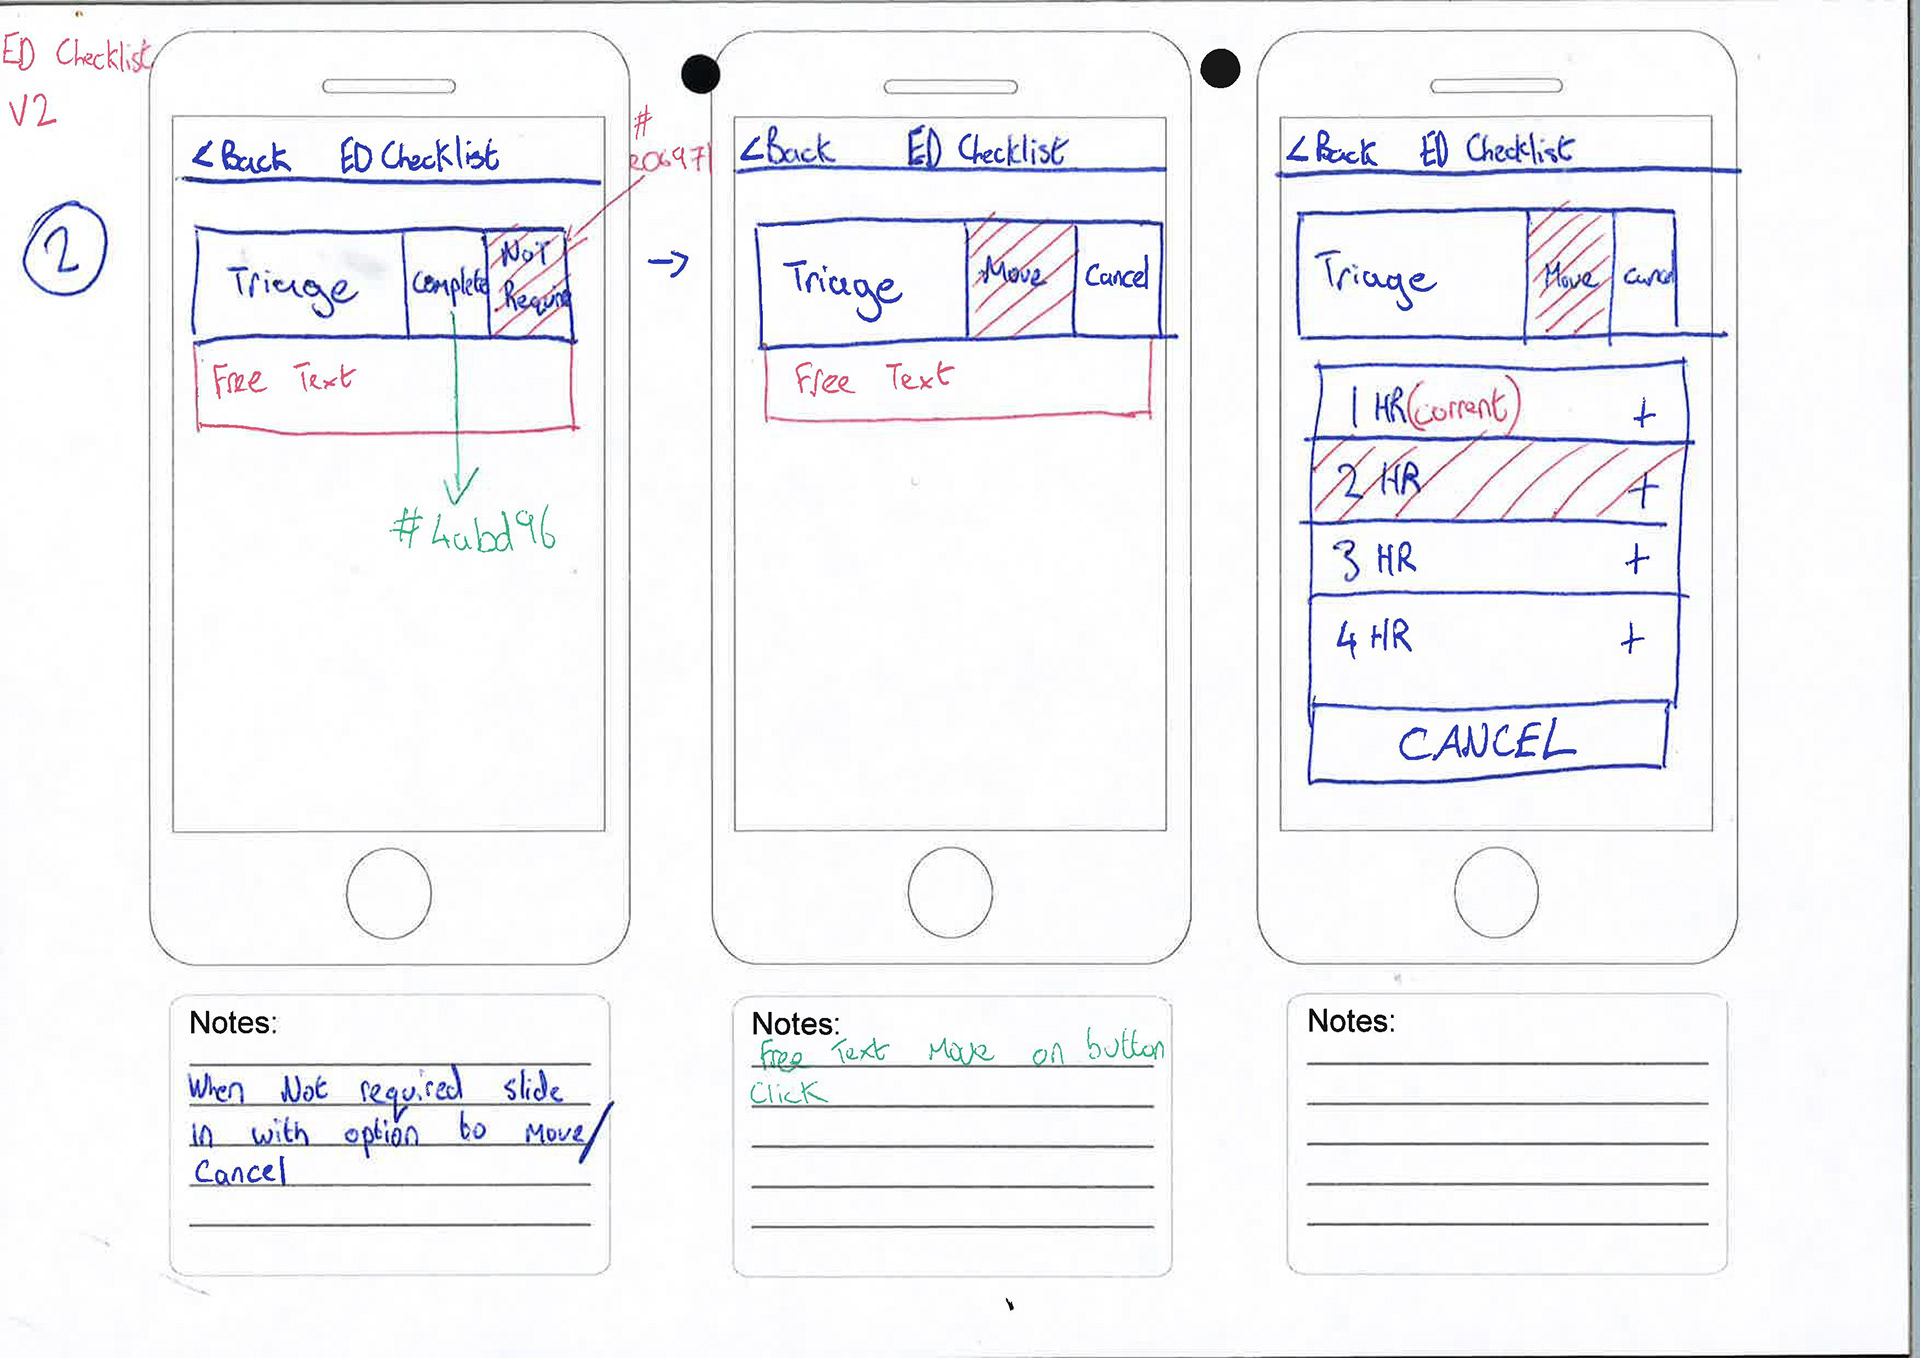 ED Checklist
V2
2
< Back ED Checklist
#
e06971
Triage
Complete
Not
Require
Free Text
#4abd96
→
< Back ED Checklist
Triage
Move
Cancel
Free Text
< Back ED Checklist
Triage
Move
Cancel
1 HR (current) +
2 HR +
3 HR +
4 HR +
CANCEL
Notes:
When Not required slide
in with option to Move/
Cancel
Notes:
Free Text Move on button
Click
Notes: